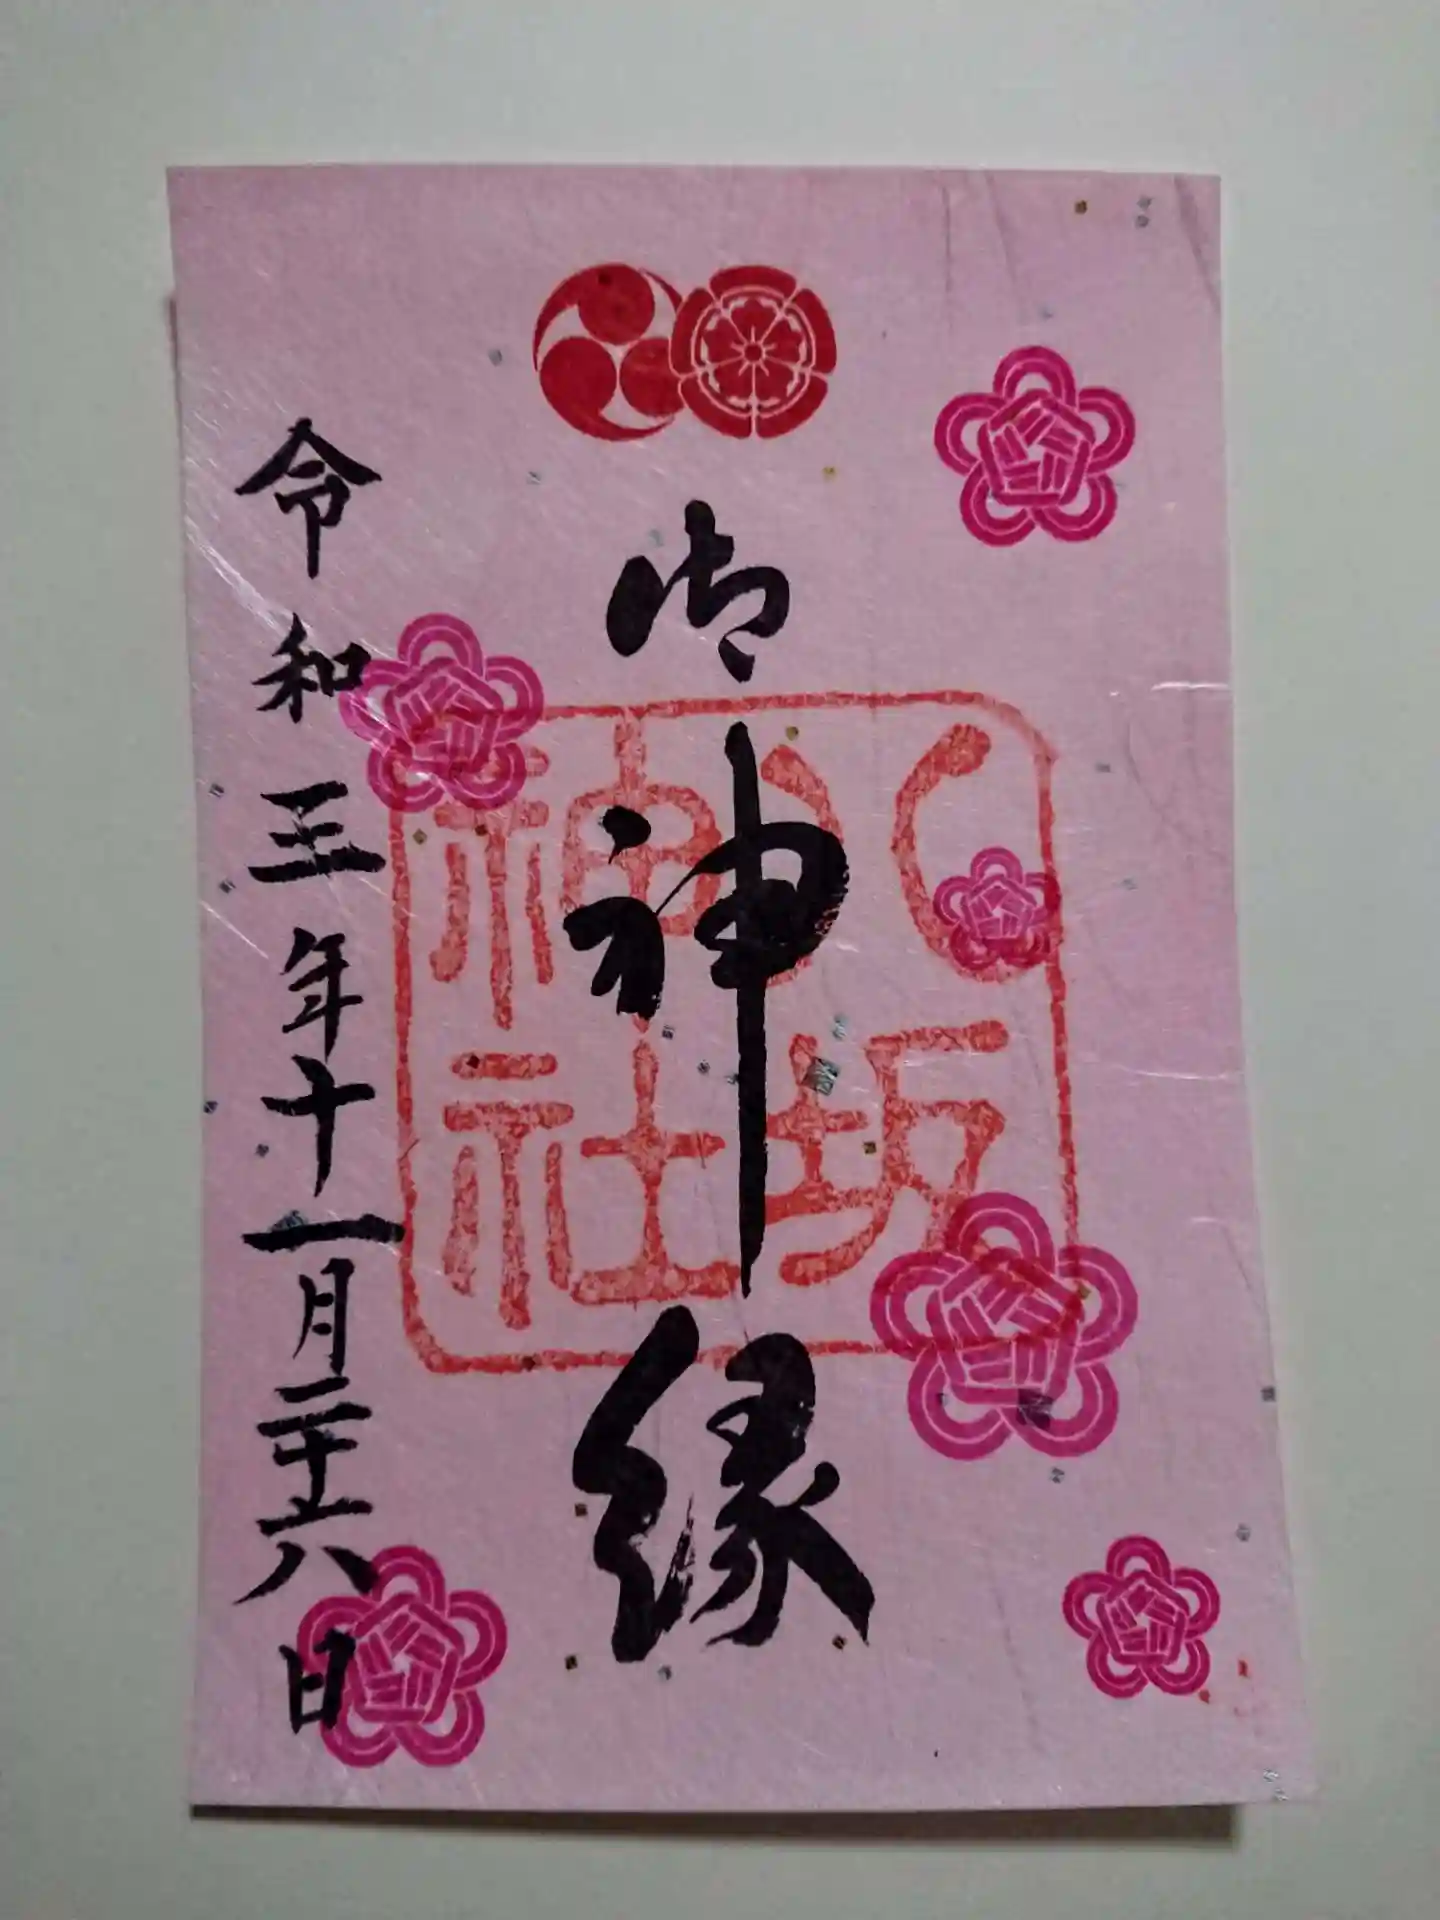 御神縁
八坂神社
令和三年十一月二十六日